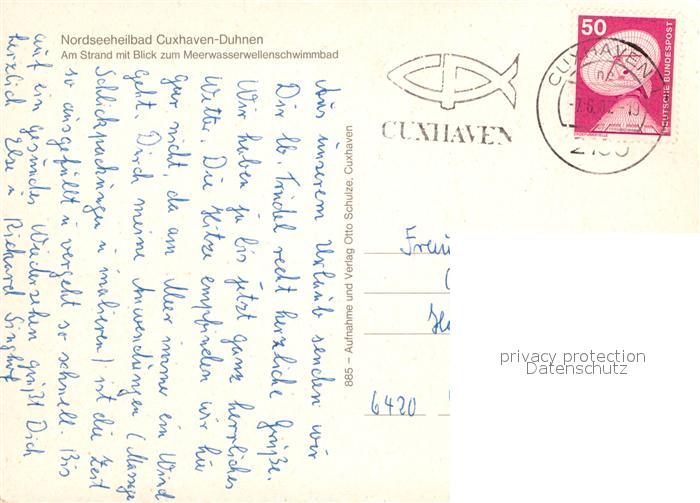 Nordseeheilbad Cuxhaven-Duhnen
Am Strand mit Blick zum Meerwasserwellenschwimmbad
Aus unserem Urlaub senden wir
Dir lb. Trudel recht herzliche Grüße.
Wir haben ja bis jetzt ganz herrliches
Wetter. Die Hitze empfinden wir hier
gar nicht, da am Meer immer ein Wind
geht. Durch meine Anwendungen (Massage
Schlickpackungen u inalieren) ist die Zeit
so ausgefüllt u vergeht so schnell. Bis
auf ein gesundes Wiedersehen grüßt Dich
herzlich Else u Richard
885 – Aufnahme und Verlag Otto Schulze, Cuxhaven
CUXHAVEN
CUXHAVEN
2190
50
DEUTSCHE BUNDESPOST
6420
privacy protection
Datenschutz